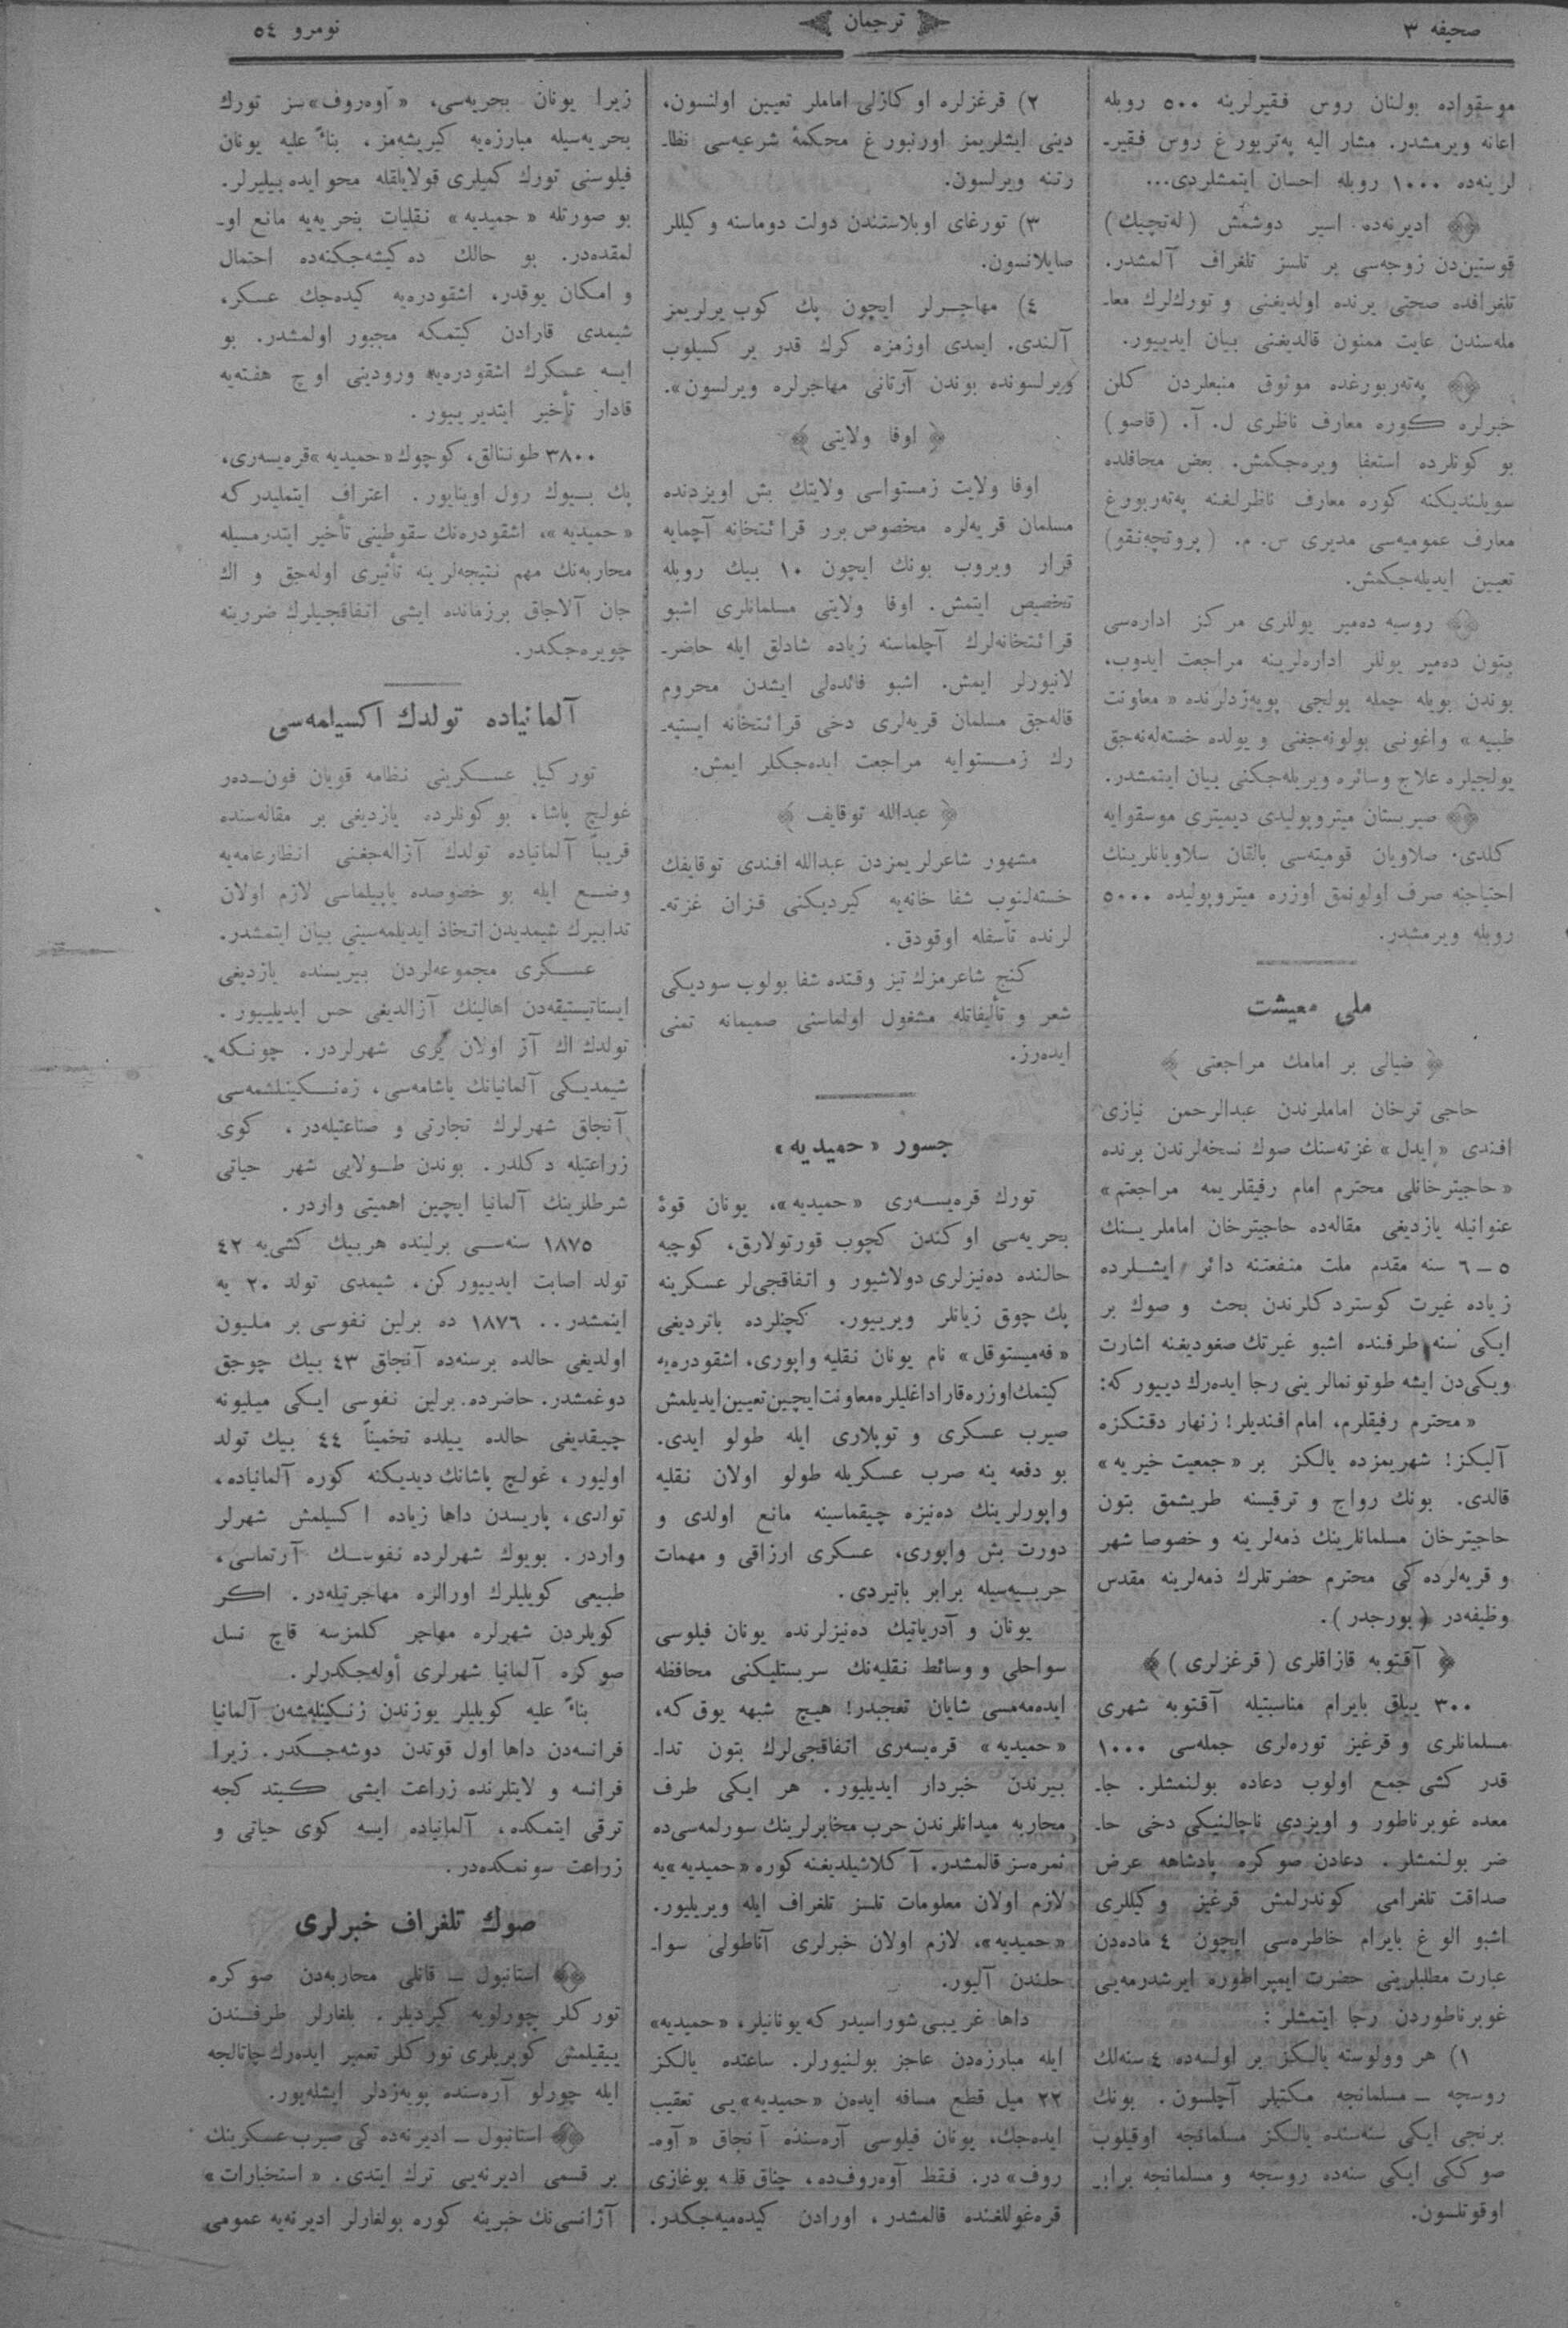 صحیفه ٣
ترجمان
نومرو ٥٤
موسقواده بولنان روس فقیرلرینه ٥٠٠ روبله
اعانه ویرمشدر. مشار الیه پەتربورغ روس فقیر۔
لرینەده ١٠٠٠ روبله احسان ایتمشلردی...
ادیرنەده اسیر دوشمش (لەتچیك)
قوستین‌دن زوجەسی بر تلسز تلغراف آلمشدر.
تلغرافده صحتی یرنده اولدیغنی و تورك‌لرك معا۔
ملەسندن غایت ممنون قالدیغنی بیان ایدییور.
پەتەربورغده موثوق منبعلردن كلن
خبرلره كوره معارف ناظری ل. آ. (قاصو)
بو كونلرده استعفا ویرەجكمش. بعض محافلده
سویلندیكنه كوره معارف ناظرلغنه پەتەربورغ
معارف عمومیەسی مدیری س. م. (پروتچەنقو)
تعیین ایدیلەجكمش.
روسیه دەمیر یوللری مركز ادارەسی
بتون دەمیر یوللر ادارەلرینه مراجعت ایدوب،
بوندن بویله جمله یولجی پویەزدلرنده «معاونت
طبیه» واغونی بولونەجغنی و یولده خستەلەنەجق
یولجیلره علاج وسائره ویریلەجكنی بیان ایتمشدر.
صربستان میتروپولیدی دیمیتری موسقوایه
كلدی. صلاویان قومیتەسی بالقان سلاویانلرینك
احتیاجنه صرف اولونمق اوزره میتروپولیده ٥٠٠٠
روبله ویرمشدر.
ملی معیشت
﴿ ضیالی بر امامك مراجعتی ﴾
حاجی ترخان اماملرندن عبدالرحمن نیازی
افندی «ایدل» غزتەسنك صوك نسخەلرندن برنده
«حاجیترخانلی محترم امام رفیقلریمه مراجعتم»
عنوانیله یازدیغی مقالەده حاجیترخان اماملرینك
٥ــ٦ سنه مقدم ملت منفعتنه دائر ایشلرده
زیاده غیرت كوستردكلرندن بحث و صوك بر
ایكی سنه طرفنده اشبو غیرتك صغودیغنه اشارت
ویكی‌دن ایشه طوتونمالرینی رجا ایدەرك دییور كه:
«محترم رفیقلرم، امام افندیلر! زنهار دقتكزه
آلیكز! شهریمزده یالكز بر «جمعیت خیریه»
قالدی. بونك رواج و ترقیسنه طریشمق بتون
حاجیترخان مسلمانلرینك ذمەلرینه و خصوصا شهر
و قریەلرده كی محترم حضرتلرك ذمەلرینه مقدس
وظیفەدر (بورجدر).
﴿ آقتوبه قازاقلری (قرغزلری) ﴾
٣٠٠ ییلق بایرام مناسبتیله آقتوبه شهری
مسلمانلری و قرغیز تورەلری جملەسی ١٠٠٠
قدر كشی جمع اولوب دعاده بولنمشلر. جا۔
معده غوبرناطور و اویزدی ناچالنیكی دخی حا۔
ضر بولنمشلر. دعادن صوكره پادشاهه عرض
صداقت تلغرامی كوندرلمش قرغیز وكیللری
اشبو الوغ بایرام خاطرەسی ایچون ٤ مادەدن
عبارت مطلبلرینی حضرت ایمپراطوره ایرشدرمەیی
غوبرناطوردن رجا ایتمشلر:
١) هر وولوسته یالكز بر اولسەده ٤ سنەلك
روسچه ــ مسلمانجه مكتبلر آچلسون. بونك
برنجی ایكی سنەسنده یالكز مسلمانجه اوقیلوب
صوككی ایكی سنەده روسچه و مسلمانجه برابر۔
اوقوتلسون.
٢) قرغزلره اوكازلی اماملر تعیین اولنسون،
دینی ایشلریمز اورنبورغ محكمۀ شرعیەسی نظا۔
رتنه ویرلسون.
٣) تورغای اوبلاستندن دولت دوماسنه وكیللر
صایلانسون.
٤) مهاجرلر ایچون پك كوب یرلریمز
آلندی. ایمدی اوزمزه كرك قدر یر كسیلوب
ویرلسونده بوندن آرتانی مهاجرلره ویرلسون».
﴿ اوفا ولایتی ﴾
اوفا ولایت زمستواسی ولایتك بش اویزدنده
مسلمان قریەلره مخصوص برر قرائتخانه آچمایه
قرار ویروب بونك ایچون ١٠ بیك روبله
تخصیص ایتمش. اوفا ولایتی مسلمانلری اشبو
قرائتخانەلرك آچلماسنه زیاده شادلق ایله حاضر۔
لانیورلر ایمش. اشبو فائدەلی ایشدن محروم
قالەجق مسلمان قریەلری دخی قرائتخانه ایستیه۔
رك زمستوایه مراجعت ایدەجكلر ایمش.
﴿ عبدالله توقایف ﴾
مشهور شاعرلریمزدن عبدالله افندی توقایفك
خستەلنوب شفا خانەیه كیردیكنی قزان غزته۔
لرنده تأسفله اوقودق.
كنج شاعرمزك تیز وقتده شفا بولوب سودیكی
شعر و تألیفاتله مشغول اولماسنی صمیمانه تمنی
ایدەرز.
جسور «حمیدیه»
تورك قرەیسەری «حمیدیه»، یونان قوۀ
بحریەسی اوكندن كچوب قورتولارق، كوچبه
حالنده دەنیزلری دولاشیور و اتفاقجی‌لر عسكرینه
پك چوق زیانلر ویرییور. كچنلرده باتردیغی
«فەمیستوقل» نام یونان نقلیه واپوری، اشقودرەیه
كیتمك اوزره قاراداغلیلره معاونت ایچین تعیین ایدیلمش
صیرب عسكری و توپلاری ایله طولو ایدی.
بو دفعه ینه صرب عسكریله طولو اولان نقلیه
واپورلرینك دەنیزه چیقماسینه مانع اولدی و
دورت بش واپوری، عسكری ارزاقی و مهمات
حربیەسیله برابر باتیردی.
یونان و آدریاتیك دەنیزلرنده یونان فیلوسی
سواحلی و وسائط نقلیەنك سربستلیكنی محافظه
ایدەمەمسی شایان تعجبدر! هیچ شبهه یوق كه،
«حمیدیه» قرەیسەری اتفاقجی‌لرك بتون تدا۔
بیرندن خبردار ایدیلیور. هر ایكی طرف
محاربه میدانلرندن حرب مخابرلرینك سورلمەسی‌ده
ثمرەسز قالمشدر. آكلاشیلدیغنه كوره «حمیدیه»یه
لازم اولان معلومات تلسز تلغراف ایله ویریلیور.
«حمیدیه»، لازم اولان خبرلری آناطولی سوا۔
حلندن آلیور.
داها غریبی شوراسیدر كه یونانیلر، «حمیدیه»
ایله مبارزەدن عاجز بولنیورلر. ساعتده یالكز
٢٢ میل قطع مسافه ایدەن «حمیدیه»یی تعقیب
ایدەجك، یونان فیلوسی آرەسنده آنجاق «آوه۔
روف»در. فقط آوەروف‌ده، چناق قلعه بوغازی
قرەغوللغنده قالمشدر، اورادن كیدەمیەجكدر.
زیرا یونان بحریەسی، «آوەروف»سز تورك
بحریەسیله مبارزەیه كیریشەمز، بناءً علیه یونان
فیلوسنی تورك كمیلری قولایلقله محو ایده بیلیرلر.
بو صورتله «حمیدیه» نقلیات بحریەیه مانع او۔
لمقدەدر. بو حالك دەكیشەجكنەده احتمال
و امكان یوقدر، اشقودرەیه كیدەجك عسكر،
شیمدی قارادن كیتمكه مجبور اولمشدر. بو
ایسه عسكرك اشقودرەیه ورودینی اوچ هفتەیه
قادار تأخیر ایتدیرییور.
٣٨٠٠ طونتالق، كوچوك «حمیدیه» قرەیسەری،
پك بیوك رول اوینایور. اعتراف ایتملیدركه
«حمیدیه»، اشقودرەنك سقوطینی تأخیر ایتدرمسیله
محاربەنك مهم نتیجەلرینه تأثیری اولەجق و اك
جان آلاجاق برزمانده ایشی اتفاقجیلرك ضررینه
چویرەجكدر.
آلمانیاده تولدك اكسیلمەسی
توركیا عسكرینی نظامه قویان فون‌دەر
غولچ پاشا، بو كونلرده یازدیغی بر مقالەسنده
قریباً آلمانیاده تولدك آزالەجغنی انظارعامەیه
وضع ایله بو خصوصده یاپیلماسی لازم اولان
تدابیرك شیمدیدن اتخاذ ایدیلمەسینی بیان ایتمشدر.
عسكری مجموعەلردن بیریسنده یازدیغی
ایستاتیستیقەدن اهالینك آزالدیغی حس ایدیلییور.
تولدك اك آز اولان یری شهرلردر. چونكه
شیمدیكی آلمانیانك یاشامەسی، زەنكینلشمەسی
آنجاق شهرلرك تجارتی و صناعتیلەدر، كوی
زراعتیله دكلدر. بوندن طولایی شهر حیاتی
شرطلرینك آلمانیا ایچین اهمیتی واردر.
١٨٧٥ سنەسی برلینده هربیك كشی‌یه ٤٢
تولد اصابت ایدییوركن، شیمدی تولد ٢٠ یه
اینمشدر.. ١٨٧٦ ده برلین نفوسی بر ملیون
اولدیغی حالده برسنەده آنجاق ٤٣ بیك چوجق
دوغمشدر. حاضرده برلین نفوسی ایكی میلیونه
چیقدیغی حالده ییلده تخمیناً ٤٤ بیك تولد
اولیور، غولچ پاشانك دیدیكنه كوره آلمانیاده،
تولدی، پاریسدن داها زیاده اكسیلمش شهرلر
واردر. بویوك شهرلرده نفوسك آرتماسی،
طبیعی كویلیلرك اورالره مهاجرتیلەدر. اكر
كویلردن شهرلره مهاجر كلمزسه قاچ نسل
صوكره آلمانیا شهرلری أولەجكدرلر.
بناءً علیه كویلیلر یوزندن زنكینلەشەن آلمانیا
فرانسەدن داها اول قوتدن دوشەجكدر. زیرا
فرانسه ولایتلرنده زراعت ایشی كیتدكجه
ترقی ایتمكده، آلمانیاده ایسه كوی حیاتی و
زراعت سونمكدەدر.
صوك تلغراف خبرلری
استانبول ــ قانلی محاربەدن صوكره
توركلر چورلویه كیردیلر. بلغارلر طرفندن
ییقیلمش كوپریلری توركلر تعمیر ایدەرك چاتالجه
ایله چورلو آرەسنده پویەزدلر ایشلەیور.
استانبول ــ ادیرنەده كی صیرب عسكرینك
بر قسمی ادیرنەیی ترك ایتدی. «استخبارات»
آژانسی‌نك خبرینه كوره بولغارلر ادیرنەیه عمومی